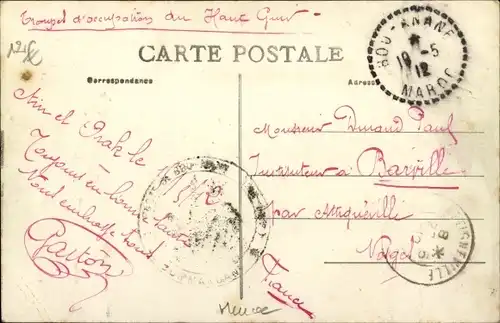 Troupes d'occupation du Haut Guir
CARTE POSTALE
Correspondance
Adresse
BOU-ANANE
19 -5
12
MAROC
Ain el Orak le
Toujours en bonne Santé
Vous embrasse tous
Gaston
Monsieur Durand Paul
Instituteur à Barville
par Attignéville
Vosges
France